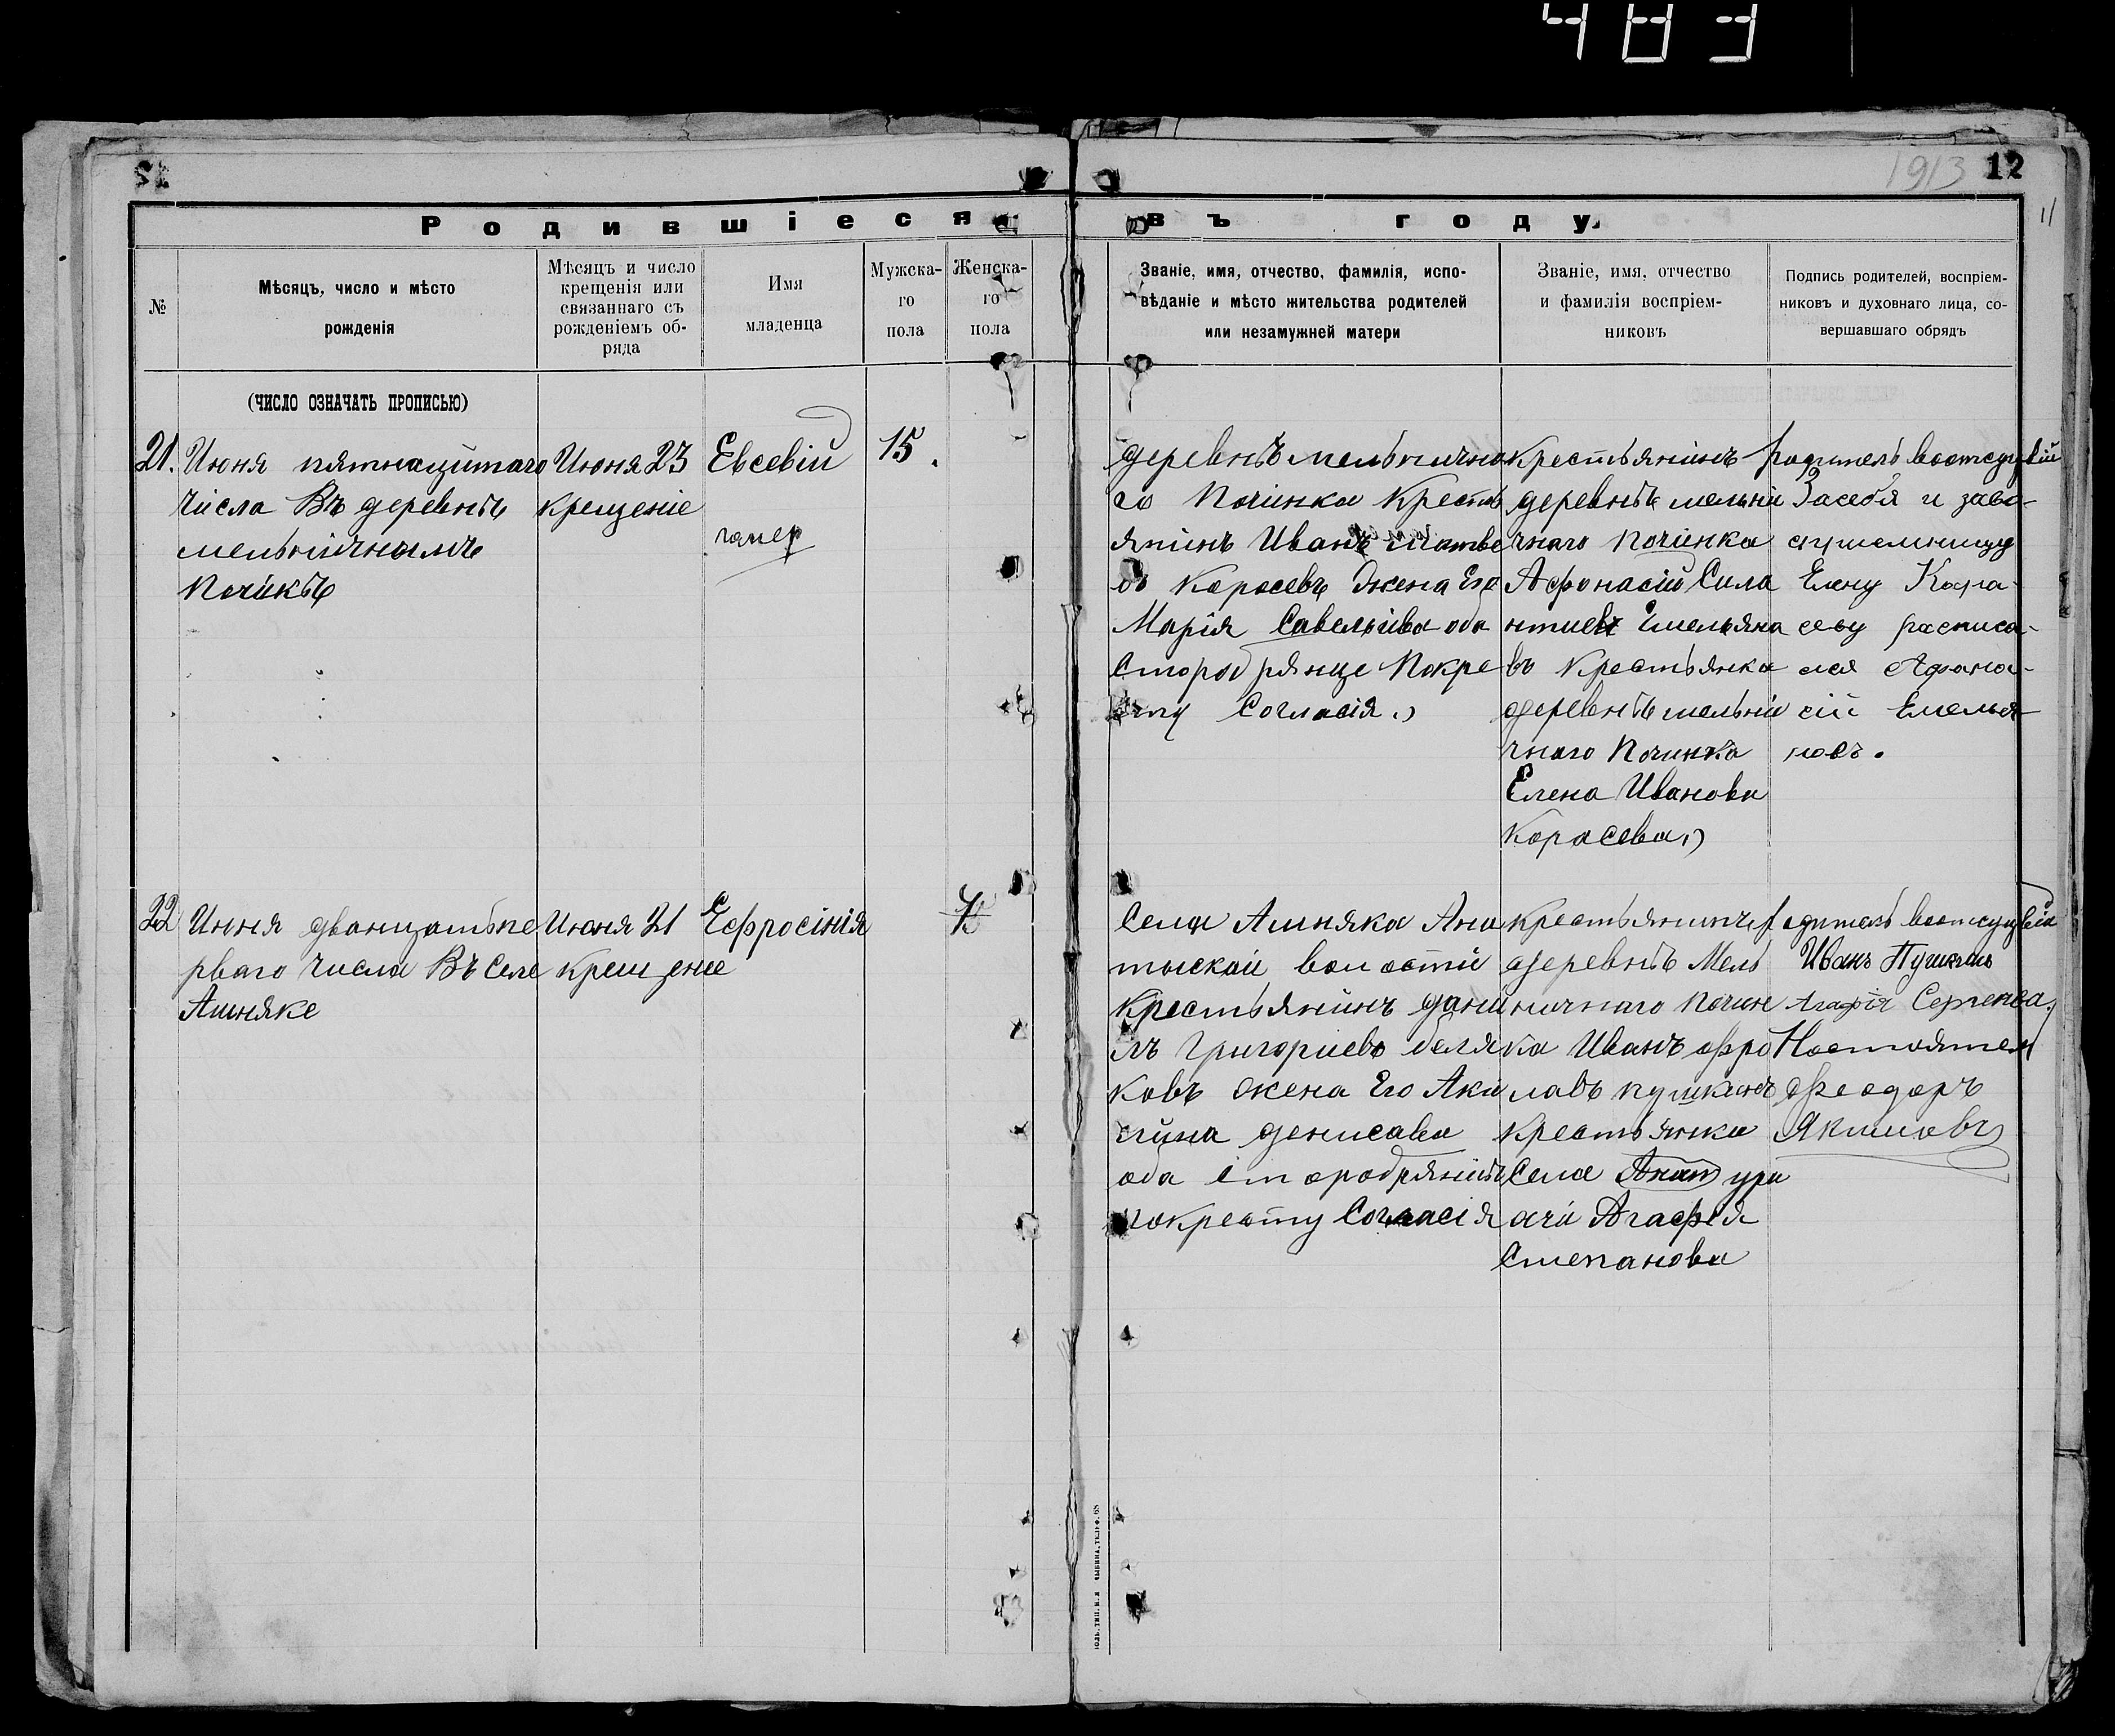 483
1913 12
11
Родившіеся въ году
№
Мѣсяцъ, число и мѣсто
рожденія
Мѣсяцъ и число
крещенія или
связаннаго съ
рожденіемъ об-
ряда
Имя
младенца
Мужска-
го
пола
Женска-
го
пола
Званіе, имя, отчество, фамилія, испо-
вѣданіе и мѣсто жительства родителей
или незамужней матери
Званіе, имя, отчество
и фамилія воспріем-
никовъ
Подпись родителей, воспріем-
никовъ и духовнаго лица, со-
вершавшаго обрядъ
(ЧИСЛО ОЗНАЧАТЬ ПРОПИСЬЮ)
21.
Июня пятнацитаго
числа Въ деревнѣ
мельничнымъ
Почикѣ
Июня 23
крещение
Евсевій
помер
15.
деревнѣ мельнично
го Починка Кресть
янинъ Иванъ Матве
въ Каросевъ Жена Его
Марія Савельива оба
Сторобрянце Покре
сту Согласія.
крестьянинъ
деревнѣ мельни
чнаго Починка
Афонасій Сила
нтиевъ Емельяна
въ Крестьянка
деревнѣ мельни
чнаго Починка
Елена Иванова
Карасева
родитель
За себя и заво-
Елену Кара-
севу расписа-
лся Афана-
сій Емелья
новъ.
22
Июня дванцатьпе
рваго числа Въ Селе
Ашняке
Июня 21
крещение
Ефросінія
Села Ашняка Ана
тыскай волости
Крестьянинъ дани
лъ Григориевъ беля
ковъ жена Его Аку
лина денисава
оба
покресту Согласія
крестьянинъ
деревнѣ Мель
ничнаго почин
ка Иванъ офро
ловъ пушкинъ
Крестьянка
Села
Агафея
Степанова
родитель
Иванъ Пушкинъ
Агафія
Настоятел
Феодоръ
Якимовъ